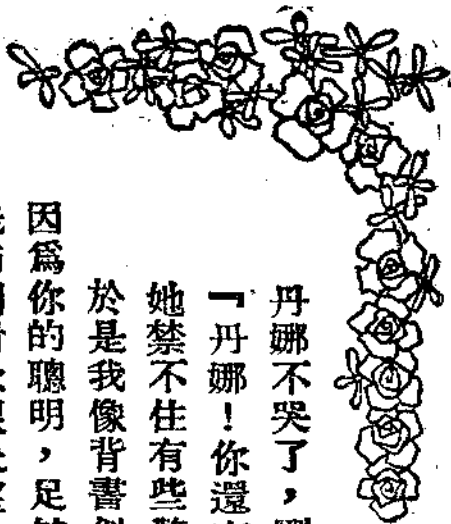 丹娜不哭了，
『丹娜！你還
她禁不住有些
於是我像背書
因爲你的聰明，足